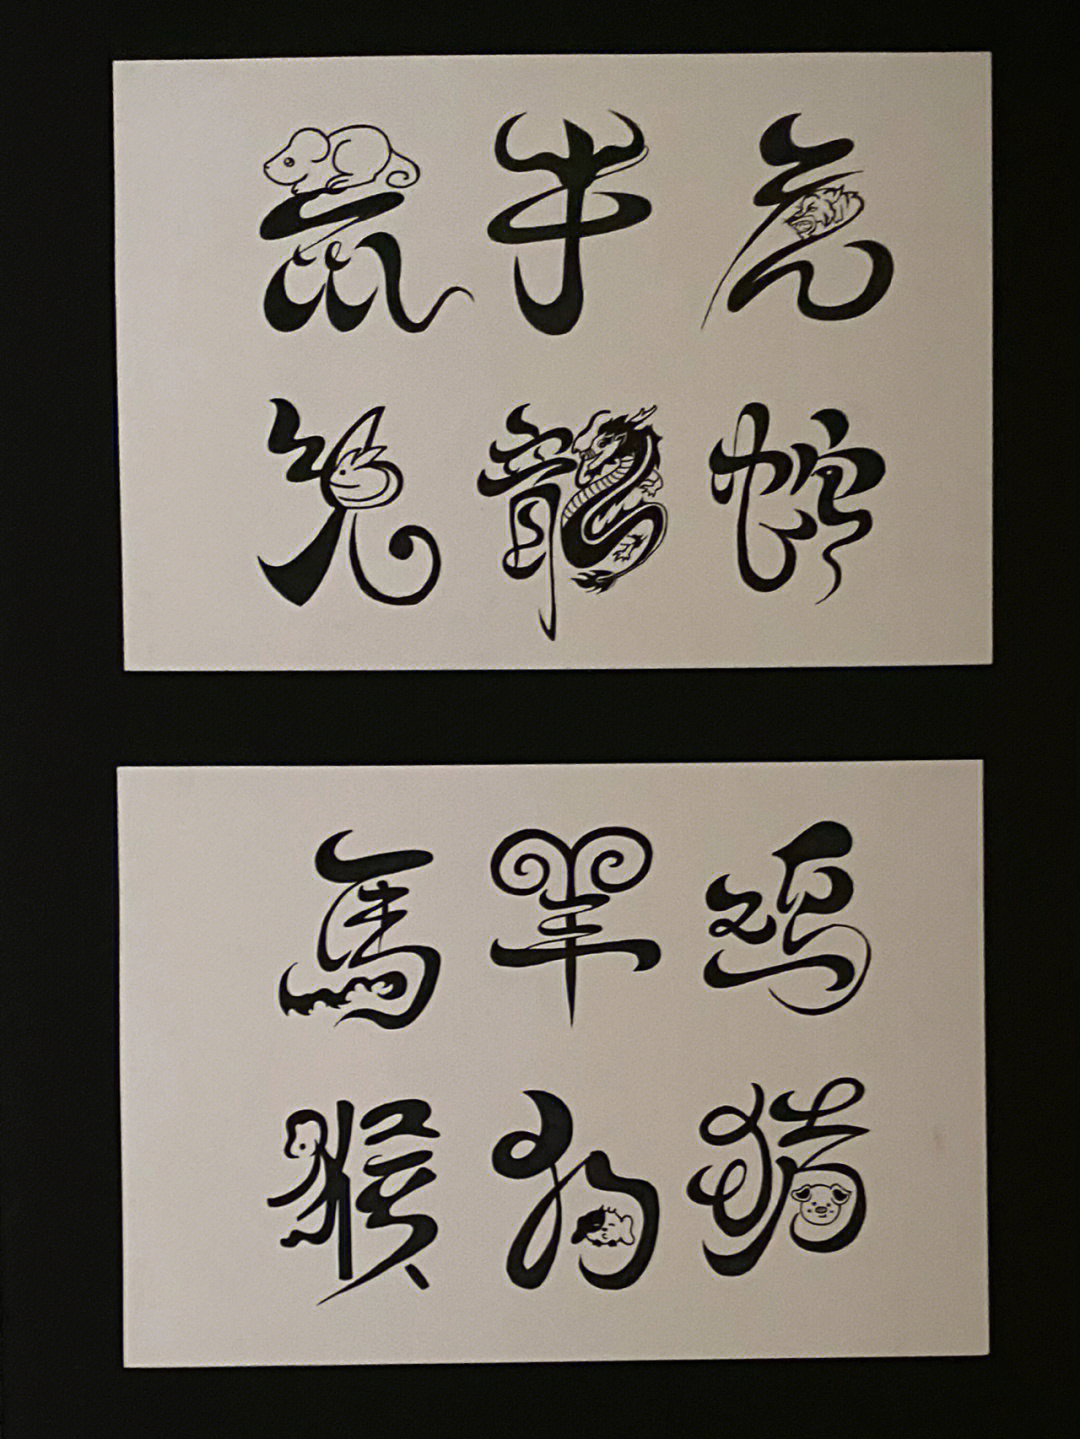 鼠 牛 虎
兔 龍 蛇
馬 羊 鸡
猴 狗 猪